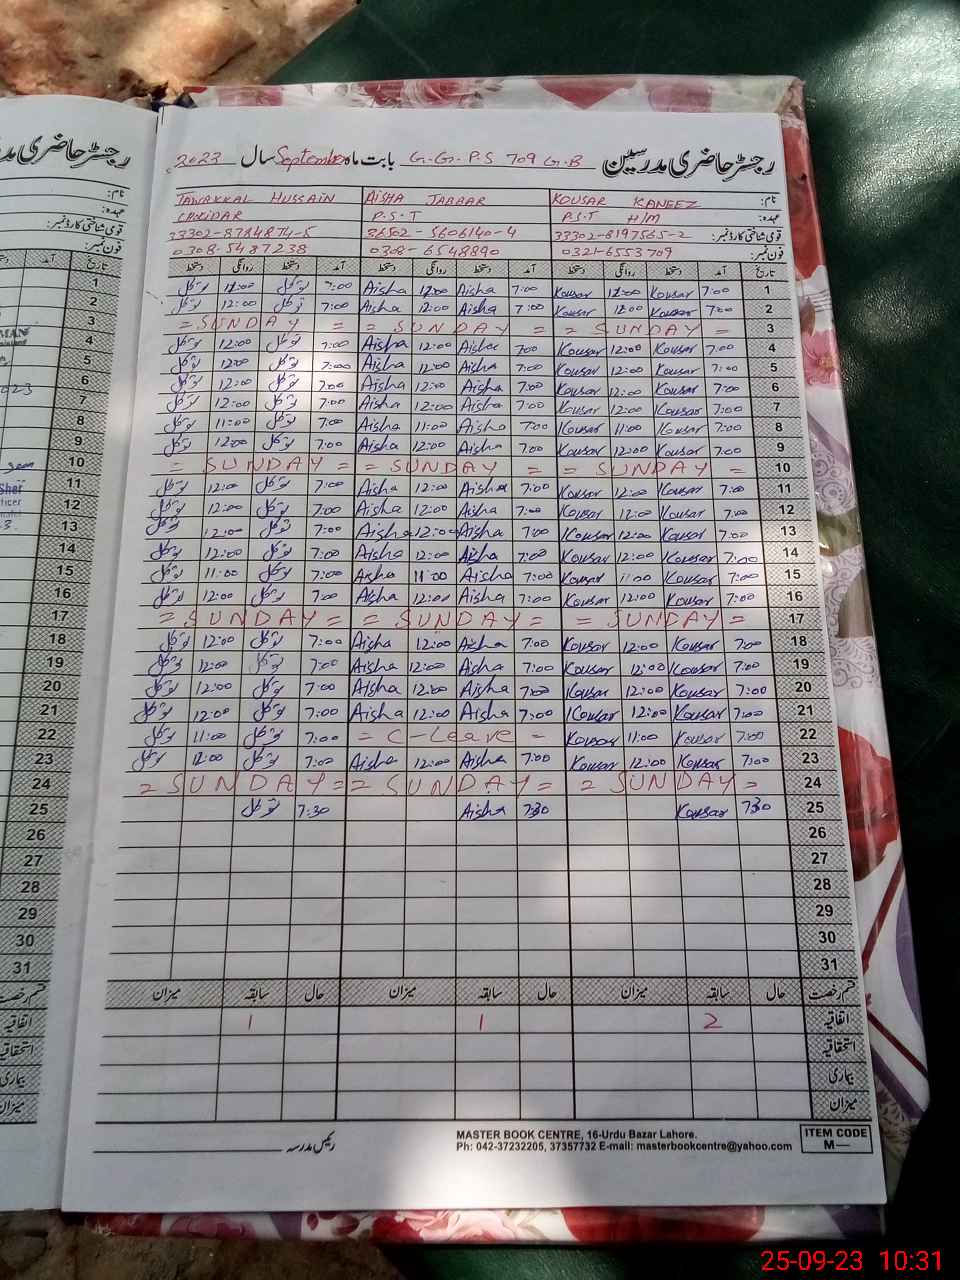 رجسٹر حاضری مدرسین G.G.P.S 709 G.B بابت ماہ September سال 2023
نام: KOUSAR KANEEZ AISHA JABBAR TAWAKKAL HUSSAIN
عہدہ: P.S.T H/M P.S.T CHOKIDAR
قومی شناختی کارڈ نمبر: 33302-8197565-2 36502-5606140-4 33302-8784874-5
فون نمبر: 0321-6553709 0308-6548890 0308-5487238
تاریخ آمد دستخط روانگی دستخط آمد دستخط روانگی دستخط آمد دستخط روانگی دستخط
1 7:00 Kousar 12:00 Kousar 7:00 Aisha 12:00 Aisha 7:00 توکل 12:00 توکل
2 7:00 Kousar 12:00 Kousar 7:00 Aisha 12:00 Aisha 7:00 توکل 12:00 توکل
3 = SUNDAY = = SUNDAY = = SUNDAY =
4 7:00 Kousar 12:00 Kousar 7:00 Aisha 12:00 Aisha 7:00 توکل 12:00 توکل
5 7:00 Kousar 12:00 Kousar 7:00 Aisha 12:00 Aisha 7:00 توکل 12:00 توکل
6 7:00 Kousar 12:00 Kousar 7:00 Aisha 12:00 Aisha 7:00 توکل 12:00 توکل
7 7:00 Kousar 12:00 Kousar 7:00 Aisha 12:00 Aisha 7:00 توکل 12:00 توکل
8 7:00 Kousar 11:00 Kousar 7:00 Aisha 11:00 Aisha 7:00 توکل 11:00 توکل
9 7:00 Kousar 12:00 Kousar 7:00 Aisha 12:00 Aisha 7:00 توکل 12:00 توکل
10 = SUNDAY = = SUNDAY = = SUNDAY =
11 7:00 Kousar 12:00 Kousar 7:00 Aisha 12:00 Aisha 7:00 توکل 12:00 توکل
12 7:00 Kousar 12:00 Kousar 7:00 Aisha 12:00 Aisha 7:00 توکل 12:00 توکل
13 7:00 Kousar 12:00 Kousar 7:00 Aisha 12:00 Aisha 7:00 توکل 12:00 توکل
14 7:00 Kousar 12:00 Kousar 7:00 Aisha 12:00 Aisha 7:00 توکل 12:00 توکل
15 7:00 Kousar 11:00 Kousar 7:00 Aisha 11:00 Aisha 7:00 توکل 11:00 توکل
16 7:00 Kousar 12:00 Kousar 7:00 Aisha 12:00 Aisha 7:00 توکل 12:00 توکل
17 = SUNDAY = = SUNDAY = = SUNDAY =
18 7:00 Kousar 12:00 Kousar 7:00 Aisha 12:00 Aisha 7:00 توکل 12:00 توکل
19 7:00 Kousar 12:00 Kousar 7:00 Aisha 12:00 Aisha 7:00 توکل 12:00 توکل
20 7:00 Kousar 12:00 Kousar 7:00 Aisha 12:00 Aisha 7:00 توکل 12:00 توکل
21 7:00 Kousar 12:00 Kousar 7:00 Aisha 12:00 Aisha 7:00 توکل 12:00 توکل
22 7:00 Kousar 11:00 Kousar = C-Leave = 7:00 توکل 11:00 توکل
23 7:00 Kousar 12:00 Kousar 7:00 Aisha 12:00 Aisha 7:00 توکل 12:00 توکل
24 = SUNDAY = = SUNDAY = = SUNDAY =
25 7:30 Kousar 7:30 Aisha 7:30 توکل
26
27
28
29
30
31
قسم رخصت حال سابقہ میزان حال سابقہ میزان حال سابقہ میزان
اتفاقیہ 2 1 1
استحقاقیہ
بیماری
میزان
رئیس مدرسہ
MASTER BOOK CENTRE, 16-Urdu Bazar Lahore.
Ph: 042-37232205, 37357732 E-mail: masterbookcentre@yahoo.com
ITEM CODE
M—
25-09-23 10:31